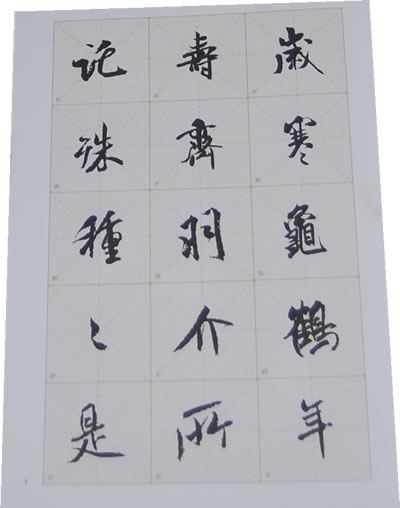 歲寒龜鶴年
壽齊羽介所
託殊種〻是